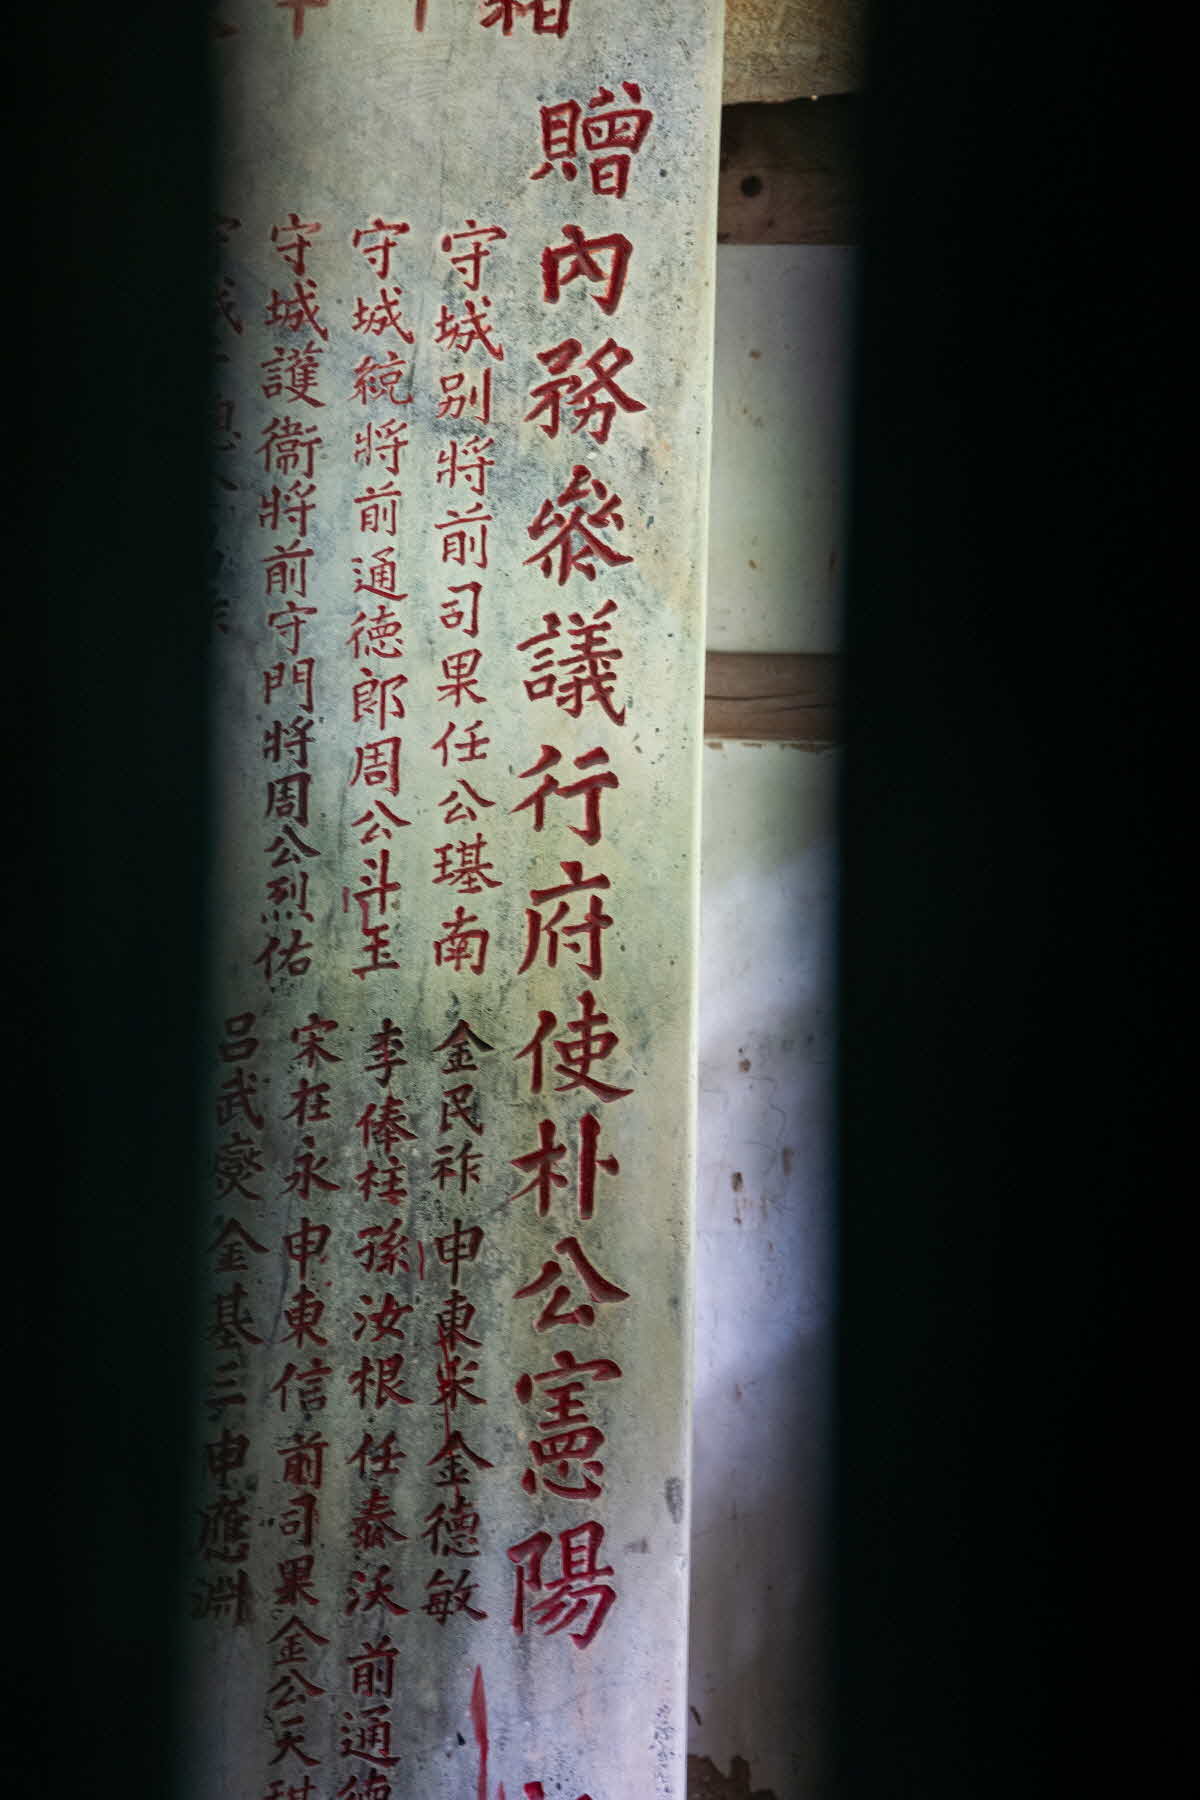 贈內務參議行府使朴公憲陽
守城別將前司果任公璂南 金民祚 申東 金德敏
守城統將前通德郎周公斗玉 李俸柱 孫汝根 任泰沃 前通德
守城護衛將前守門將周公烈佑 宋在永 申東信 前司果金公天
呂武燮 金基三 申應淵